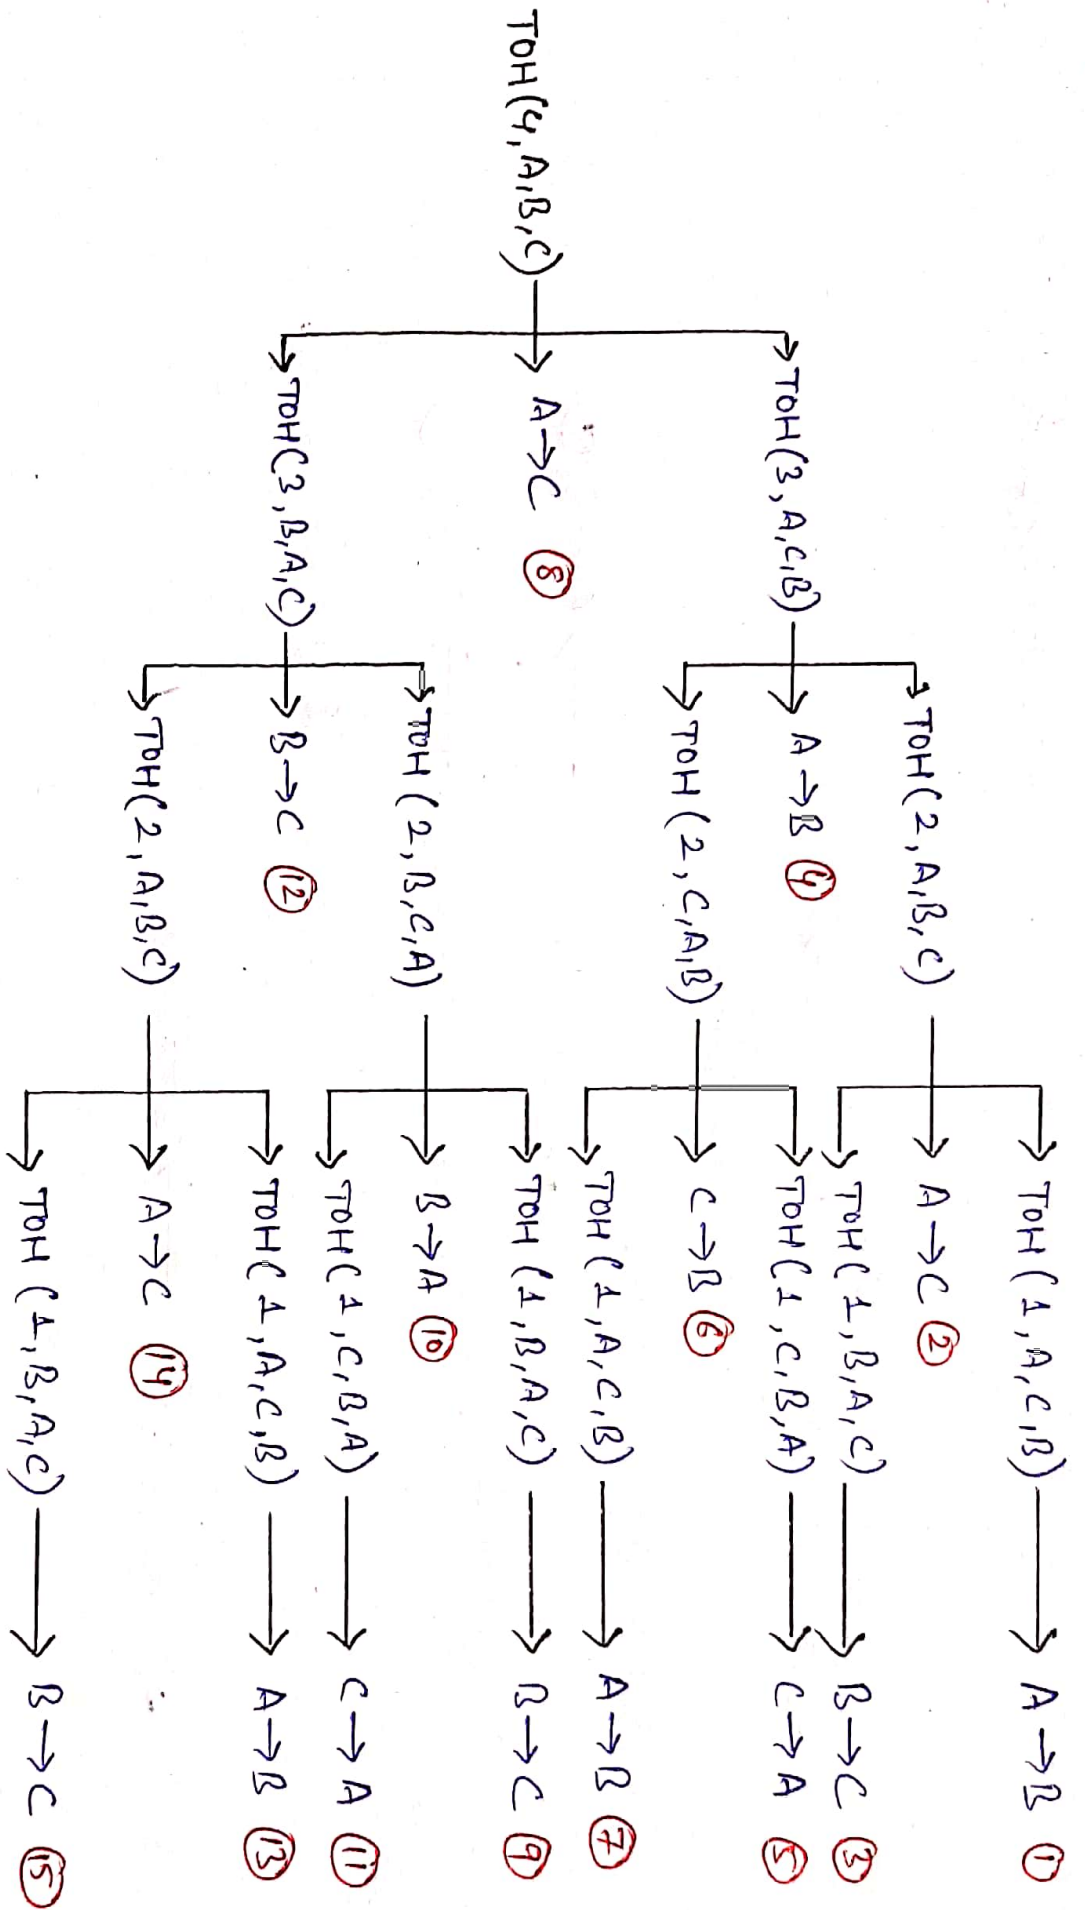 TOH(4,A,B,C)
TOH(3,A,C,B)
A→C 8
TOH(3,B,A,C)
TOH(2,A,B,C)
A→B 4
TOH(2,C,A,B)
TOH(2,B,C,A)
B→C 12
TOH(2,A,B,C)
TOH(1,A,C,B) → A→B 1
A→C 2
TOH(1,B,A,C) → B→C 3
TOH(1,C,B,A) → C→A 5
C→B 6
TOH(1,A,C,B) → A→B 7
TOH(1,B,A,C) → B→C 9
B→A 10
TOH(1,C,B,A) → C→A 11
TOH(1,A,C,B) → A→B 13
A→C 14
TOH(1,B,A,C) → B→C 15